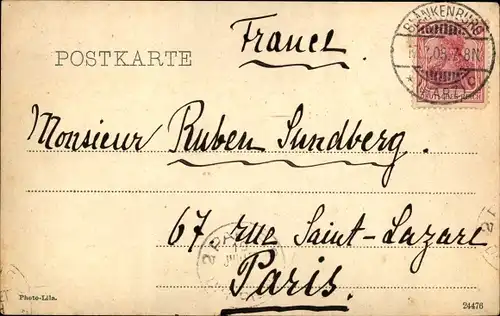 France.
POSTKARTE
BLANKENBURG
(HARZ) C
Monsieur Ruben Sundberg.
67. rue Saint-Lazare
Paris.
Photo-Lila.
24476